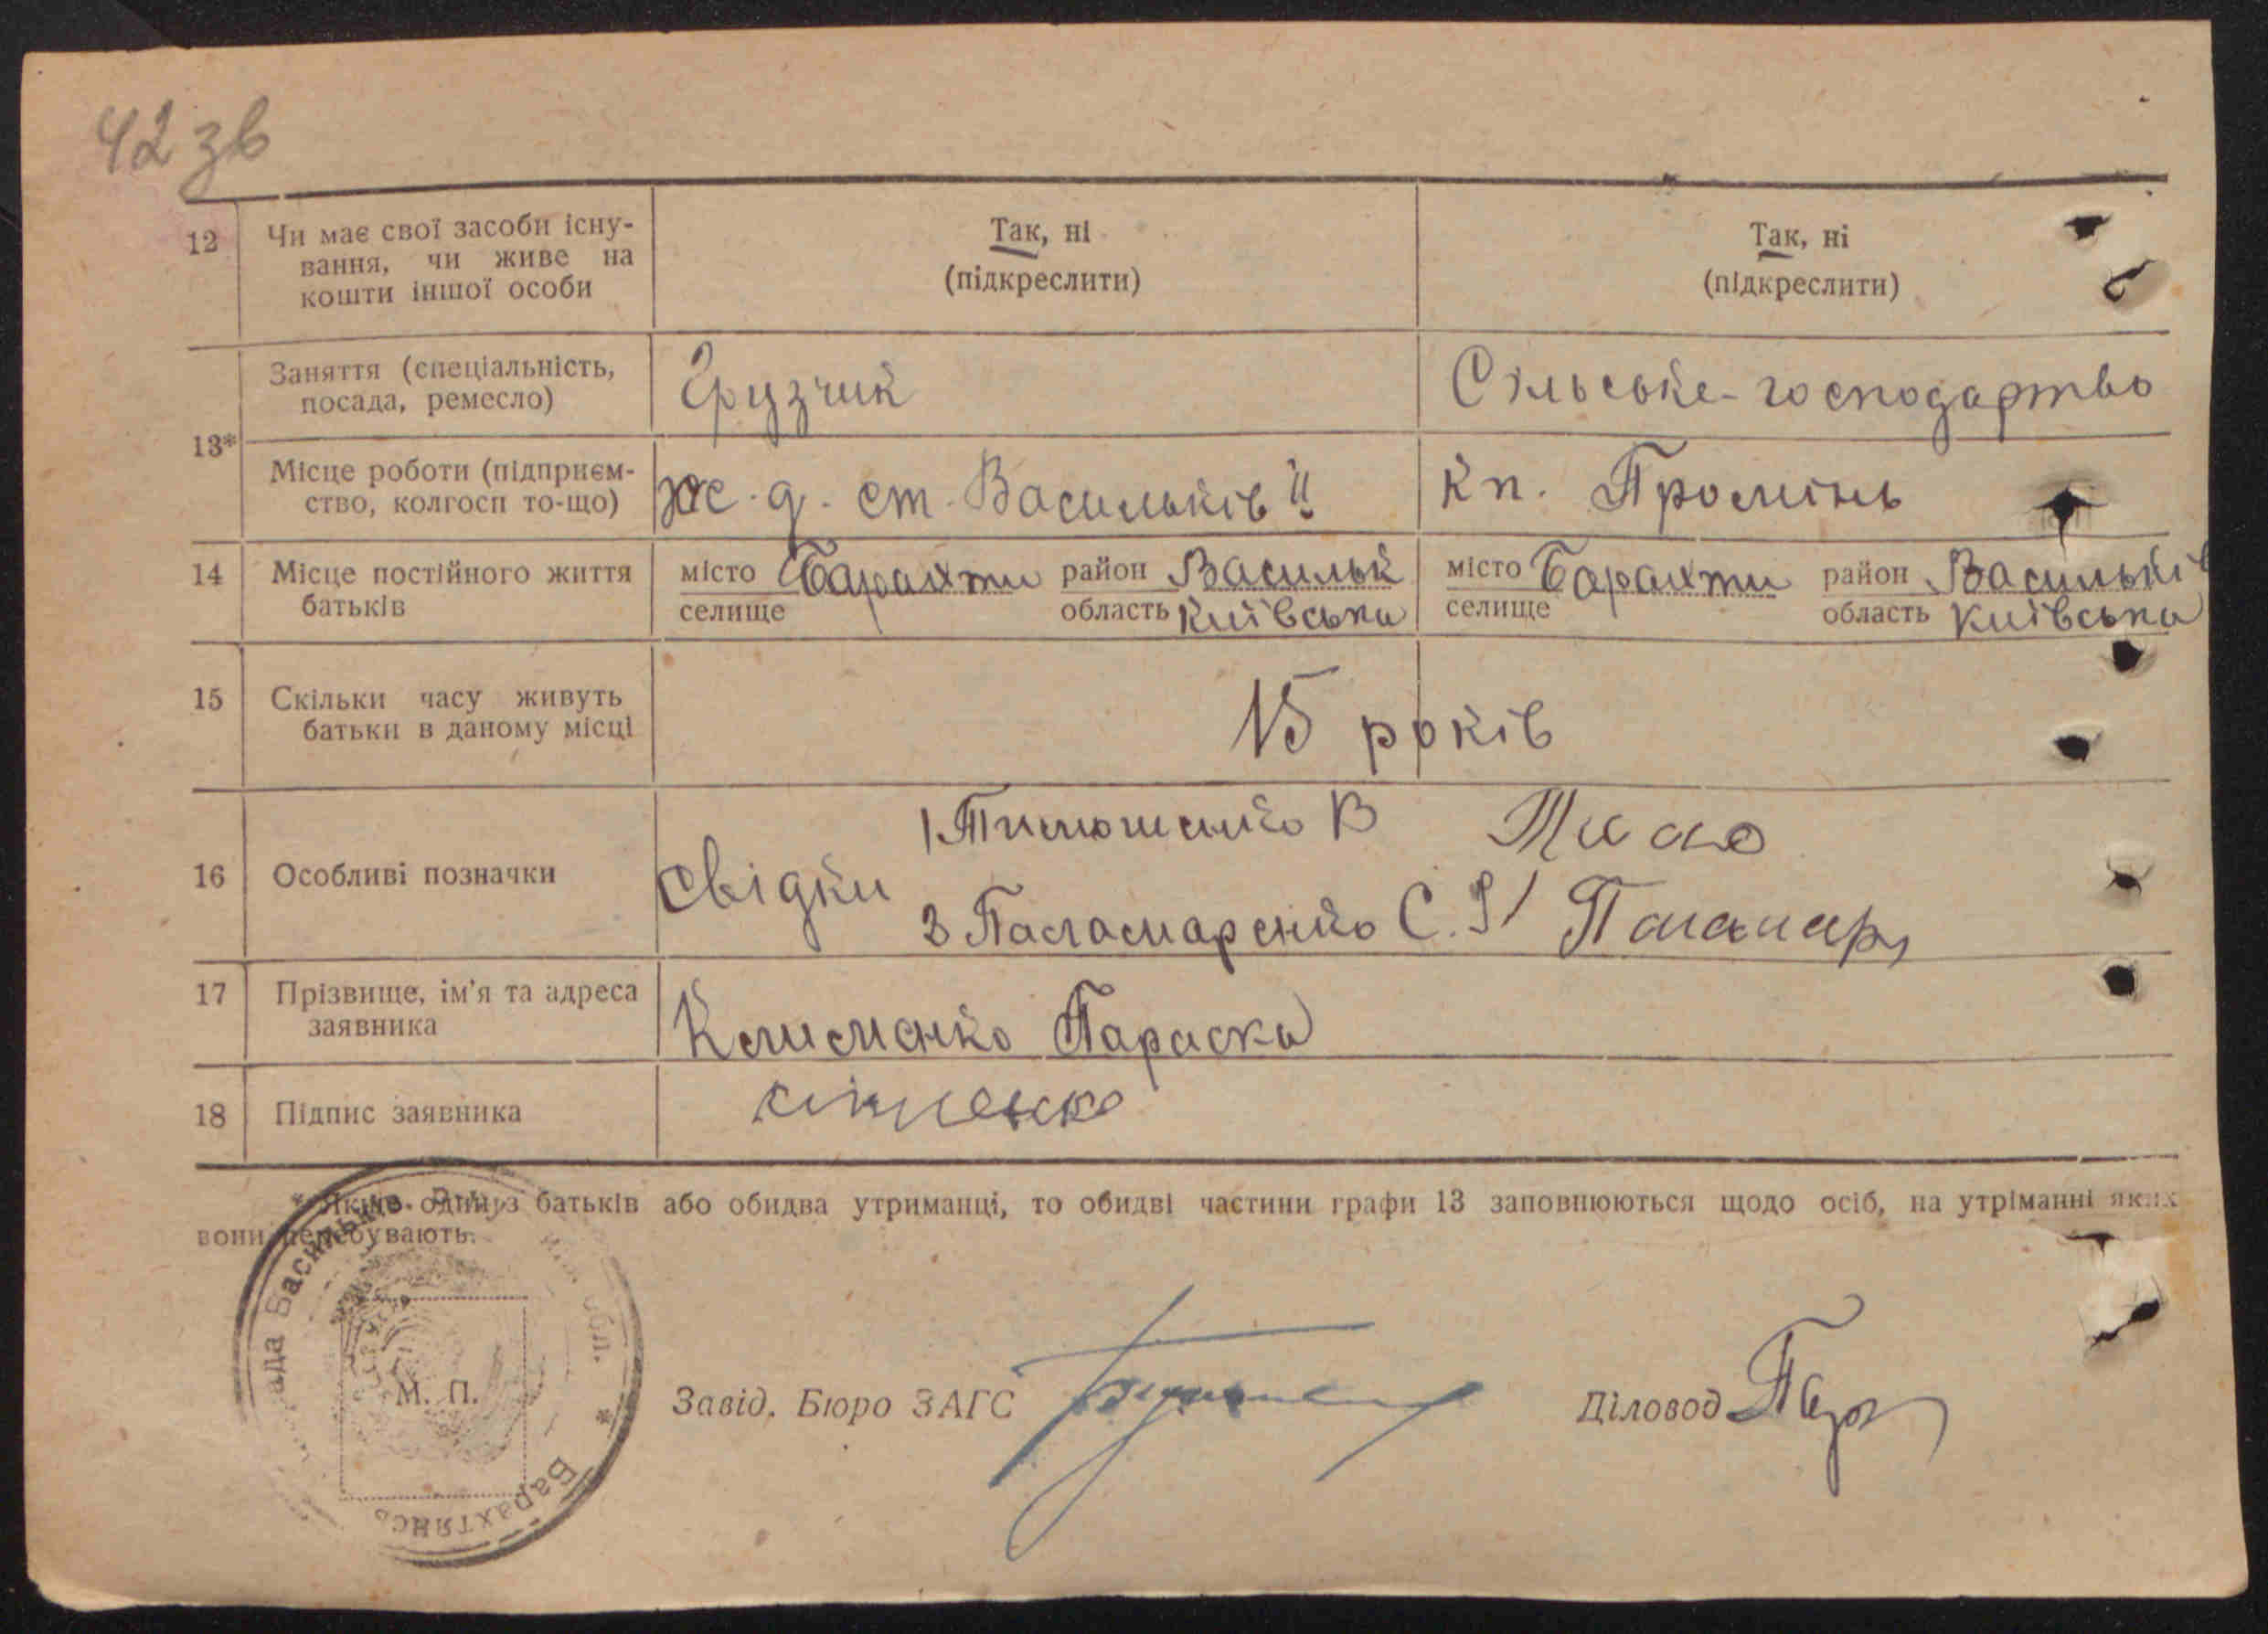 42 зв
12 Чи має свої засоби існу-
вання, чи живе на
кошти іншої особи
Так, ні
(підкреслити)
Так, ні
(підкреслити)
13*
Заняття (спеціальність,
посада, ремесло)
Грузчик
Сільське-господартво
Місце роботи (підприєм-
ство, колгосп то-що)
ж.д. ст. Васильків II
кп. Промінь
14 Місце постійного життя
батьків
місто Барахти район Васильк
селище область Київська
місто Барахти район Васильків
селище область Київська
15 Скільки часу живуть
батьки в даному місці
15 років
16 Особливі позначки
свідки
1 Тимошенко В
Тимо
Паламаренко С. Паламар
17 Прізвище, ім'я та адреса
заявника
Клименко Параска
18 Підпис заявника
* Якщо один з батьків або обидва утриманці, то обидві частини графи 13 заповнюються щодо осіб, на утріманні яких
вони перебувають.
М. П.
Завід. Бюро ЗАГС
Діловод
обл. *